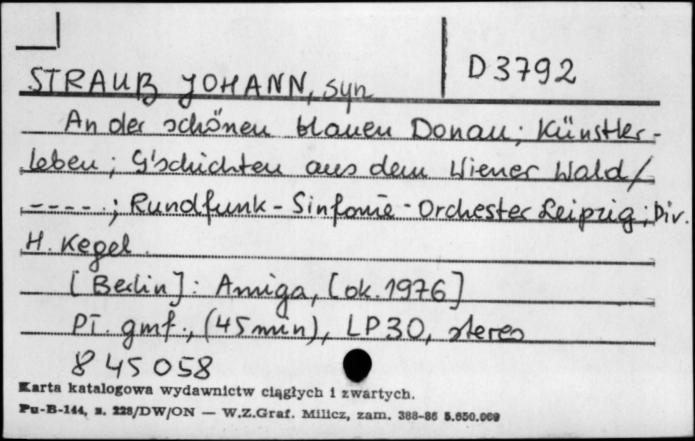 D 3792
STRAUß JOHANN, syn
An der schönen blauen Donau; Künstler-
leben; G'schichten aus dem Wiener Wald /
----; Rundfunk-Sinfonie-Orchester Leipzig; Dir.
H. Kegel.
[Berlin]: Amiga, [ok. 1976]
Pł. gmf., (45 min), LP30, stereo
8 45 058
Karta katalogowa wydawnictw ciągłych i zwartych.
Pu-B-144, z. 228/DW/ON — W.Z.Graf. Milicz, zam. 388-86 5.650.000